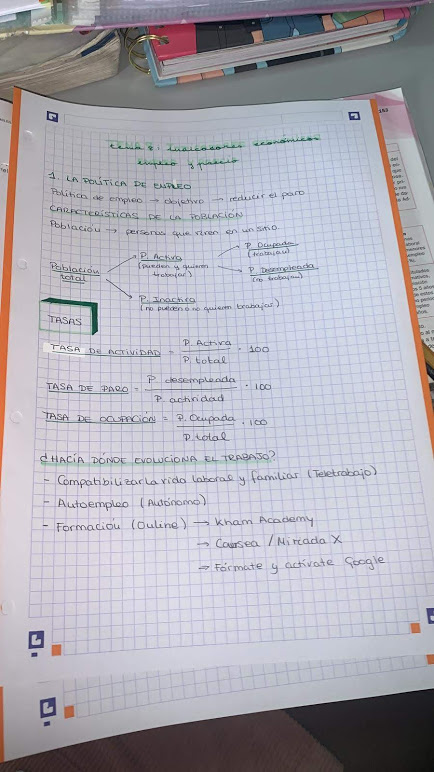 Tema 8: Indicadores económicos
empleo y precio
1. LA POLÍTICA DE EMPLEO
Política de empleo → objetivo → reducir el paro
CARACTERÍSTICAS DE LA POBLACIÓN
Población → personas que viven en un sitio.
Población total
P. Activa
(pueden y quieren trabajar)
P. Ocupada
(trabajan)
P. Desempleada
(no trabajan)
P. Inactiva
(no pueden o no quieren trabajar)
TASAS
TASA DE ACTIVIDAD = P. Activa / P. total · 100
TASA DE PARO = P. desempleada / P. actividad · 100
TASA DE OCUPACIÓN = P. Ocupada / P. total · 100
¿HACÍA DÓNDE EVOLUCIONA EL TRABAJO?
- Compatibilizar la vida laboral y familiar (Teletrabajo)
- Autoempleo (Autónomo)
- Formación (Online) → Kham Academy
→ Coursea / Miriada X
→ Fórmate y actívate Google
153